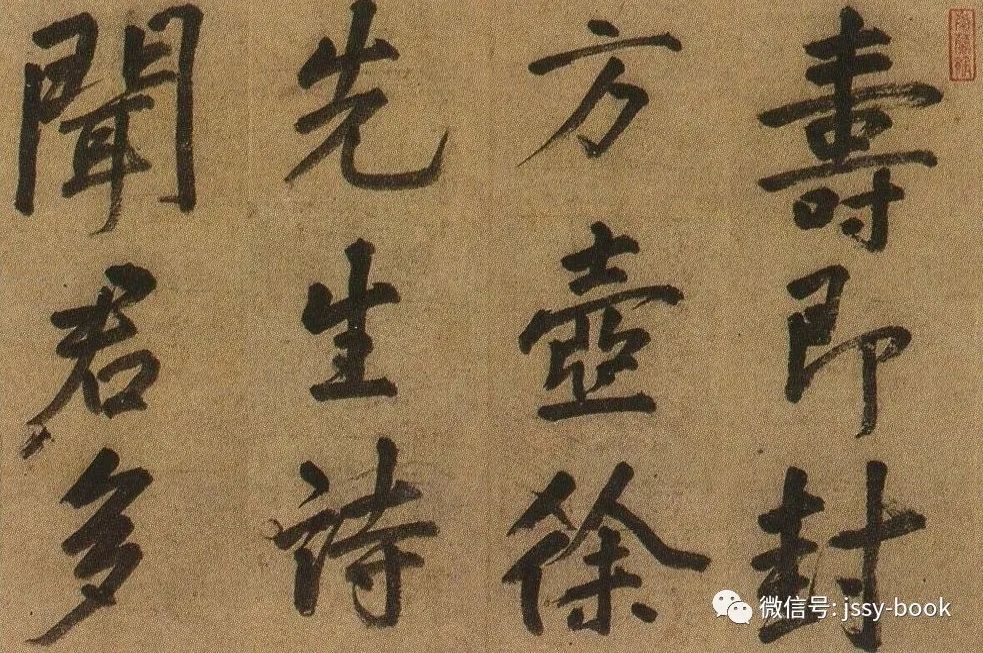 壽即封
方壺徐
先生詩
聞君多
微信号: jssy-book